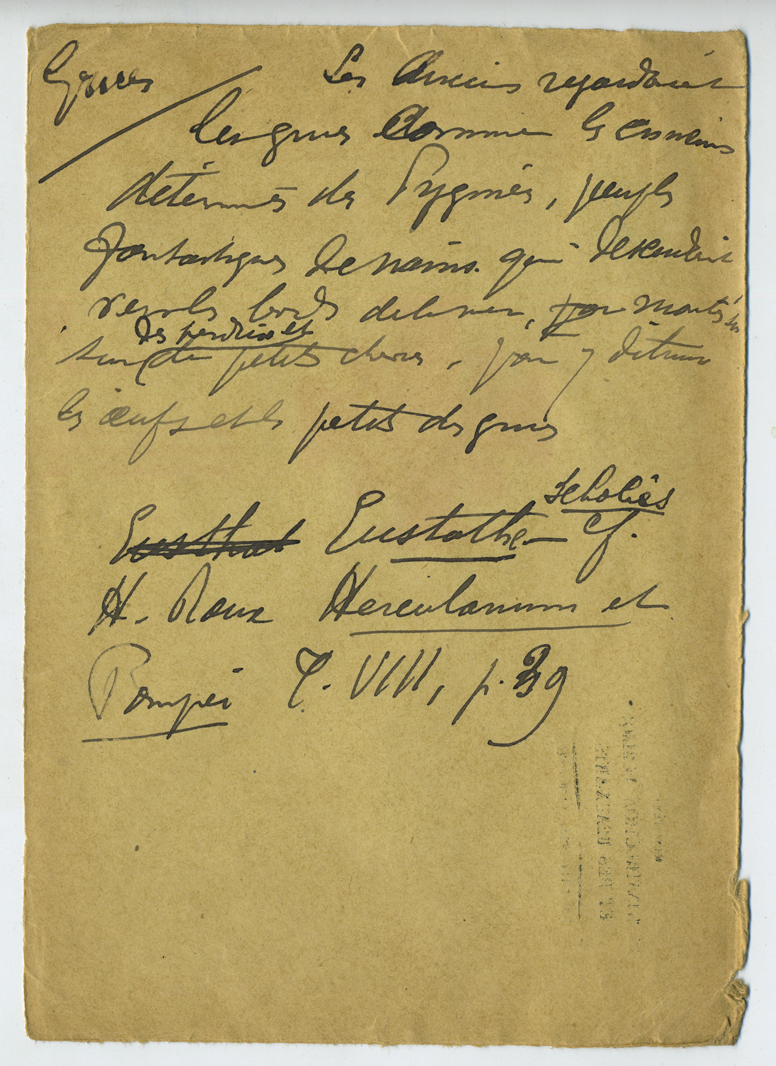 Grues Les Anciens regardaient
les grues comme les ennemis
déterminés des Pygmées, peuple
fantastique de nains qui descendait
vers les bords de la mer, montés
des perdrix et
sur de petites chèvres, pour y détruire
les œufs et les petits des grues
scholies
Eusthat Eustathe cf.
H. Roux Herculanum et
Pompéi T. VIII, p. 39